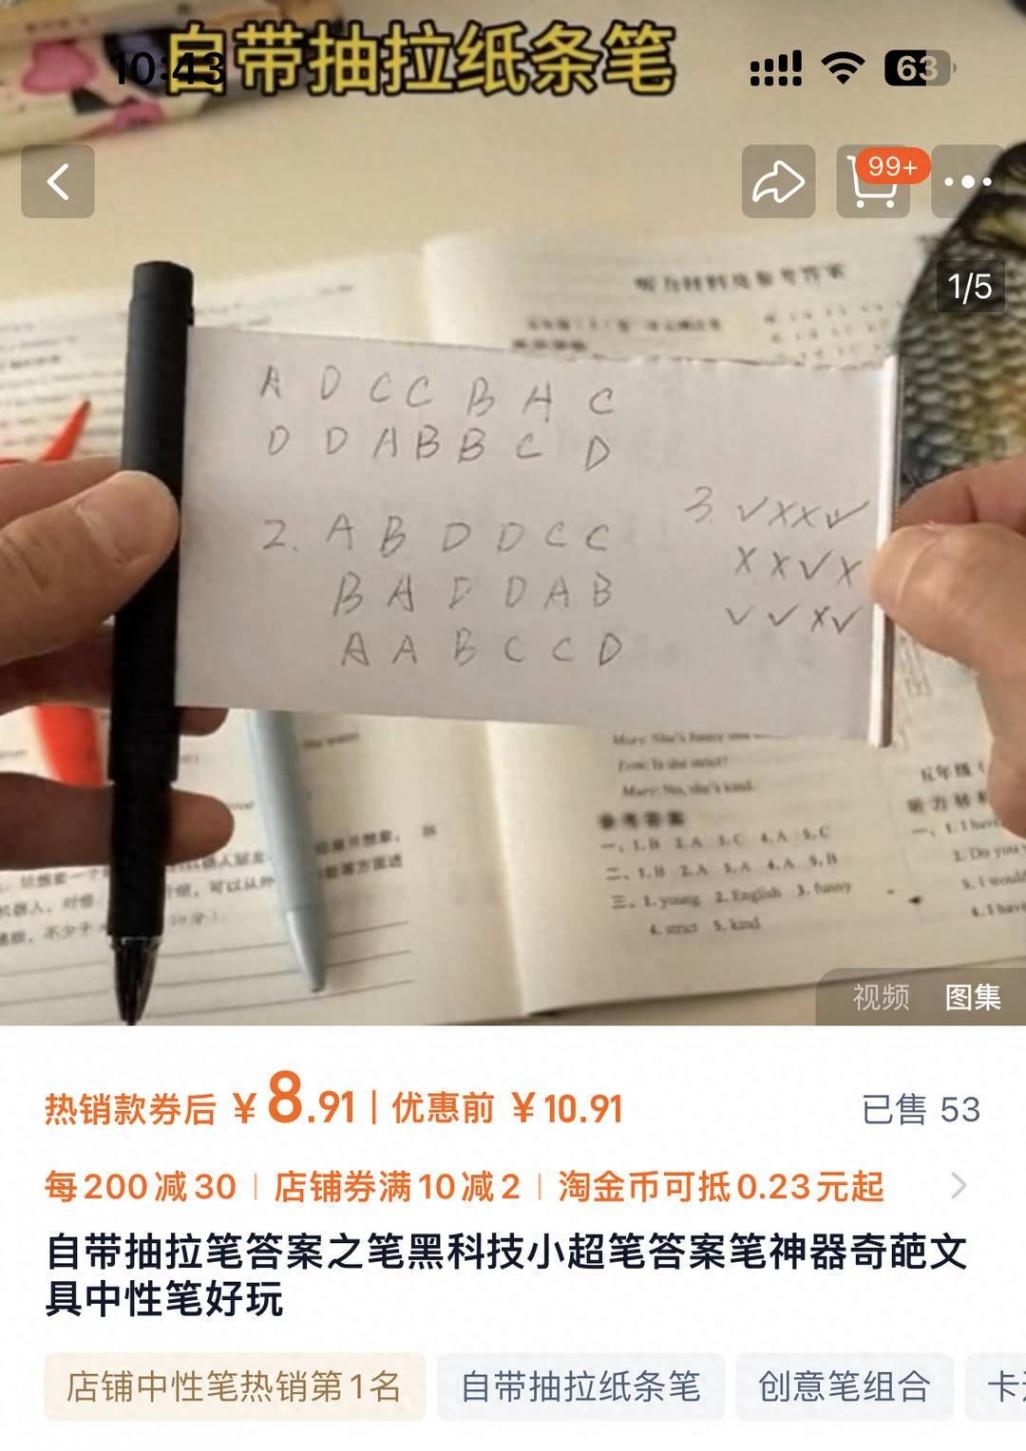 自带抽拉纸条笔
10:43
63
99+
1/5
A D C C B A C
D D A B B C D
2. A B D D C C
B A D D A B
A A B C C D
3. ✓ X X ✓
X X ✓ X
✓ ✓ X ✓
Mary: No, she's kind.
参考答案
一、1.B 2.A 3.C 4.A 5.C
二、1.B 2.A 3.A 4.A 5.B
三、1.young 2.English 3.funny
4.strict 5.kind
视频 图集
热销款券后 ¥8.91 | 优惠前 ¥10.91
已售 53
每200减30 | 店铺券满10减2 | 淘金币可抵0.23元起
自带抽拉笔答案之笔黑科技小超笔答案笔神器奇葩文
具中性笔好玩
店铺中性笔热销第1名
自带抽拉纸条笔
创意笔组合